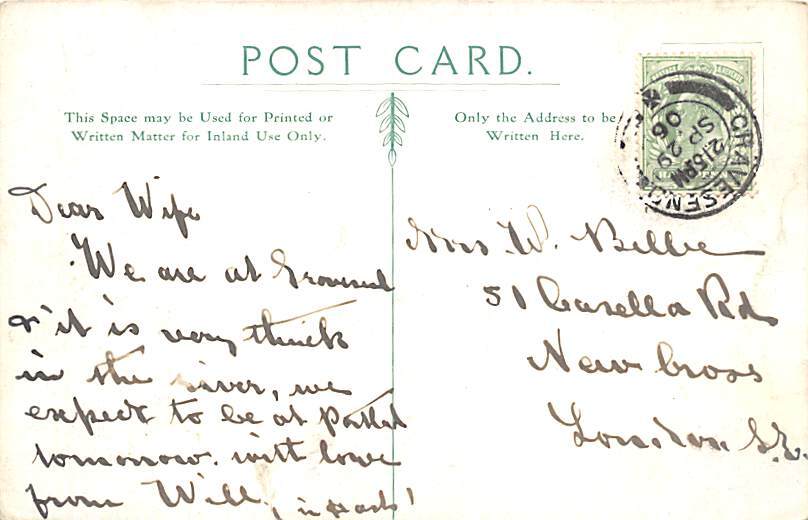 POST CARD.
This Space may be Used for Printed or
Written Matter for Inland Use Only.
Only the Address to be
Written Here.
GRAVESEND
2 15 PM
SP 29
06
Dear Wife
We are at Gravesend
& it is very thick
in the river, we
expect to be at
tomorrow. with love
from Will,
Mrs W. Billie
51 Casella Rd
New Cross
London S.E.